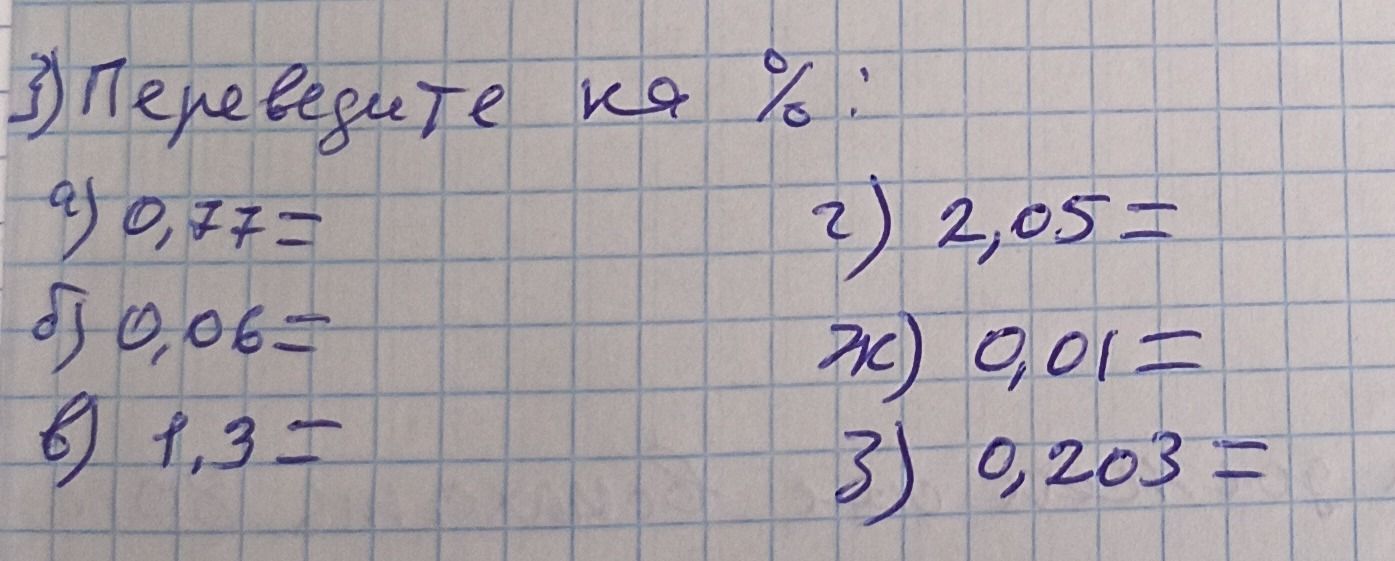 3) Переведите кя %:
а) 0,77=
б) 0,06=
в) 1,3=
г) 2,05=
ж) 0,01=
з) 0,203=